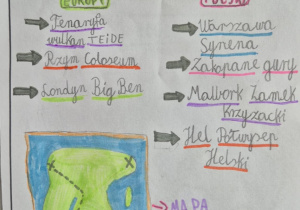 EUROPY
Tenaryfa
wulkan TEiDE
Rzym Coloseum
Londyn Big Ben
POLSKI
Warszawa
Syrena
Zakopane góry
Malbork Zamek
Krzyżacki
Hel Półwysep
Helski
MAPA